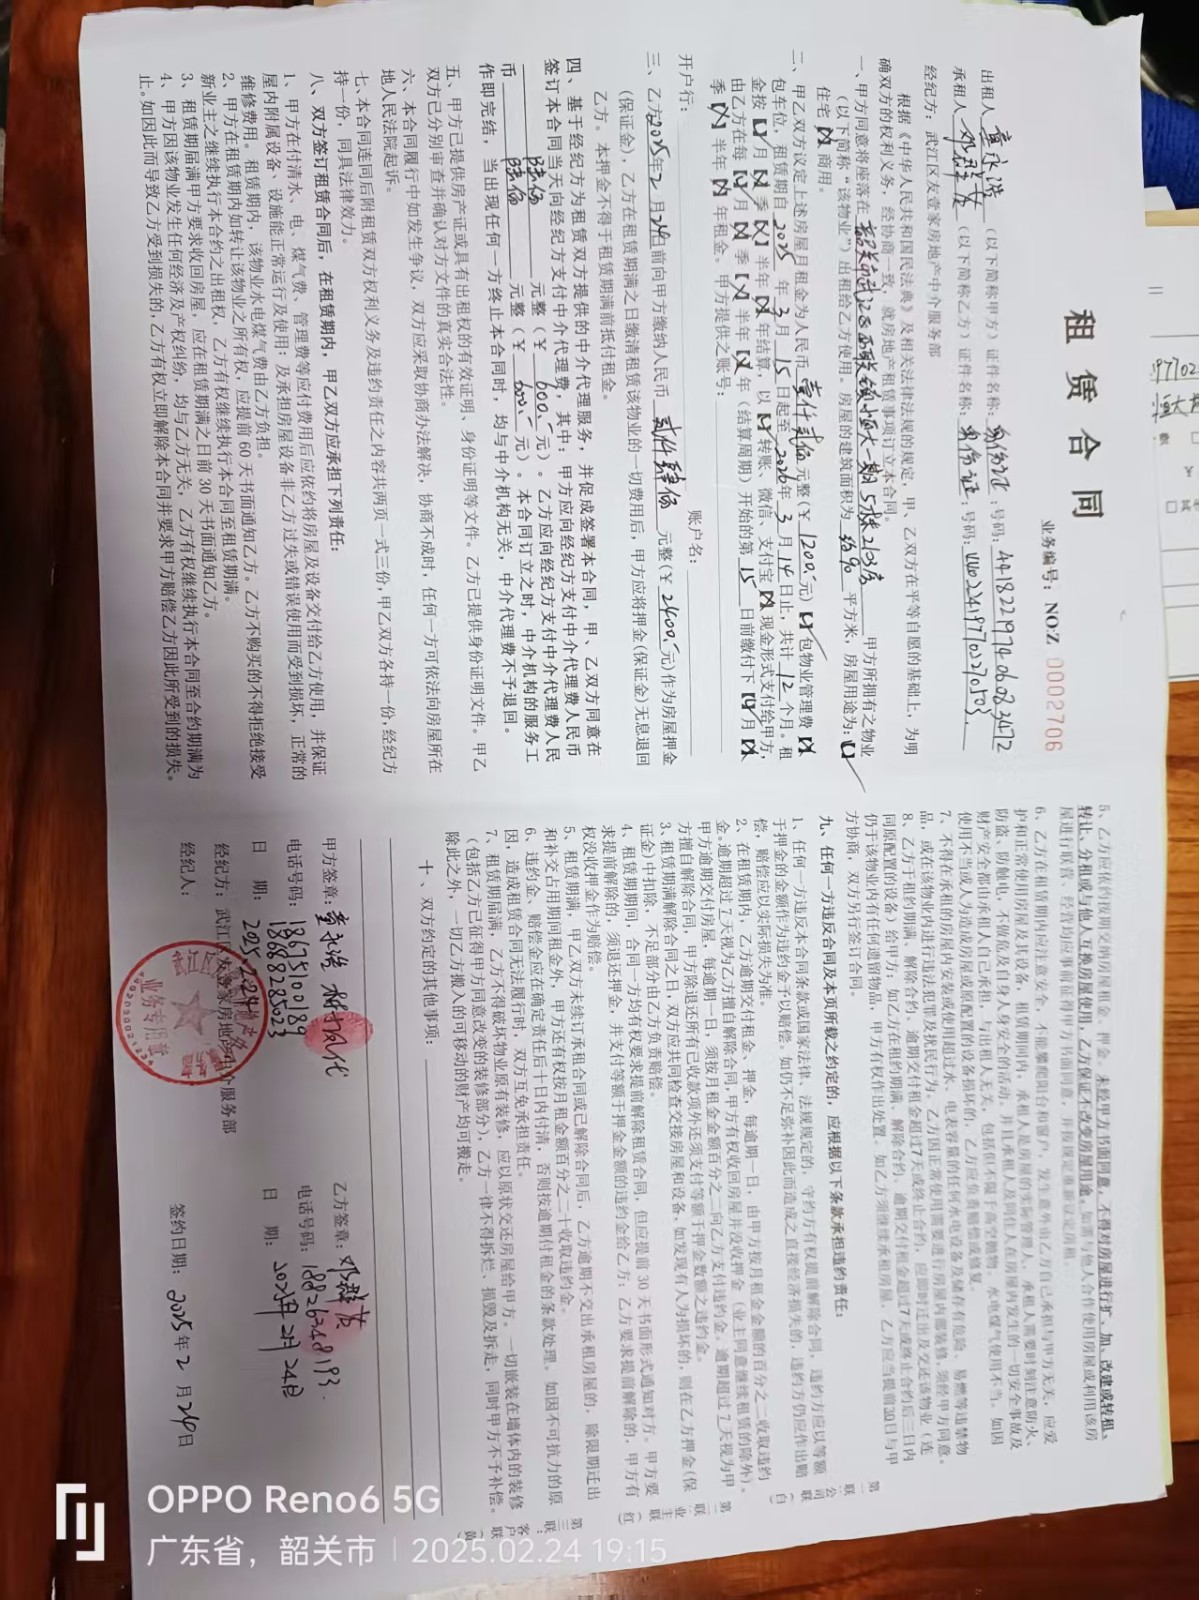 租赁合同
业务编号：NO:Z 0002706
出租人 （以下简称甲方）证件名称：身份证 号码：
承租人 邓群英 （以下简称乙方）证件名称：身份证 号码：
经纪方：武江区友壹家房地产中介服务部
根据《中华人民共和国民法典》及相关法律法规的规定，甲、乙双方在平等自愿的基础上，为明
确双方的权利义务，经协商一致，就房地产租赁事项订立本合同。
一、甲方同意将座落在 韶关市武江区西联镇恒大一期5栋2103房 甲方所拥有之物业
（以下简称“该物业”）出租给乙方使用。房屋的建筑面积为 约90 平方米，房屋用途为：
住宅 商用。
二、甲乙双方议定上述房屋月租金为人民币 壹仟贰佰 元整（￥ 1200 元） 包物业管理费
包车位，租赁期自 2025 年 3 月 15 日起至 2026 年 3 月 14 日止，共计 12 个月。租
金按 月 季 半年 年结算，以 转账、微信、支付宝 现金形式支付给甲方，
由乙方在每 月 季 半年 年（结算周期）开始的第 15 日前缴付下 月
季 半年 年租金。甲方提供之账号：
开户行： 账户名：
三、乙方2025年2月24日前向甲方缴纳人民币 贰仟肆佰 元整（￥ 2400 元）作为房屋押金
（保证金），乙方在租赁期满之日缴清租赁该物业的一切费用后，甲方应将押金(保证金)无息退回
乙方。本押金不得于租赁期满前抵付租金。
四、基于经纪方为租赁双方提供的中介代理服务，并促成签署本合同，甲、乙双方同意在
签订本合同当天向经纪方支付中介代理费，其中：甲方应向经纪方支付中介代理费人民币
陆佰 元整（￥ 600 元）。乙方应向经纪方支付中介代理费人民
币 陆佰 元整（￥ 600 元）。本合同订立之时，中介机构的服务工
作即完结，当出现任何一方终止本合同时，均与中介机构无关，中介代理费不予退回。
五、甲方已提供房产证或具有出租权的有效证明、身份证明等文件。乙方已提供身份证明文件。甲乙
双方已分别审查并确认对方文件的真实合法性。
六、本合同履行中如发生争议，双方应采取协商办法解决，协商不成时，任何一方可依法向房屋所在
地人民法院起诉。
七、本合同连同后附租赁双方权利义务及违约责任之内容共两页一式三份，甲乙双方各持一份，经纪方
持一份，同具法律效力。
八、双方签订租赁合同后，在租赁期内，甲乙双方应承担下列责任：
1、甲方在付清水、电、煤气费、管理费等应付费用后应依约将房屋及设备交付给乙方使用，并保证
屋内附属设备、设施能正常运行及使用；及承担房屋设备非乙方过失或错误使用而受到损坏，正常的
维修费用。租赁期内，该物业水电煤气费由乙方负担。
2、甲方在租赁期内如转让该物业之所有权，应提前60天书面通知乙方。乙方不购买的不得拒绝接受
新业主之继续执行本合约之出租权，乙方有权继续执行本合同至租赁期满。
3、租赁期届满甲方要求收回房屋，应在租赁期满之日前30天书面通知乙方。
4、甲方因该物业发生任何经济及产权纠纷，均与乙方无关，乙方有权继续执行本合同至合约期满为
止。如因此而导致乙方受到损失的，乙方有权立即解除本合同并要求甲方赔偿乙方因此所受到的损失。
5、乙方应依约按期交纳房屋租金、押金。未经甲方书面同意，不得对房屋进行扩、加、改建或转租、
转让、分租或与他人互换房屋使用，乙方保证不改变房屋用途。如需与他人合作使用房屋或利用该房
屋进行联营、经营均应事前征得甲方书面同意，并按规定重新议定房租。
6、乙方在租赁期内应注意安全，不能攀爬阳台和窗户，发生意外由乙方自己承担与甲方无关，应爱
护和正常使用房屋及其设备，租赁期间内，承租人是房屋的实际管理人，承租人需要时刻注意防火、
防盗、防触电，不做危及自身人身安全的活动，并且承租人及同住人在房屋内发生的一切安全事故及
财产安全都由承租人自己承担，与出租人无关，包括但不限于高空抛物、水电煤气使用不当。如因
使用不当或人为造成房屋或原配置的设备损坏的，乙方应负责赔偿或修复。
7、不得在承租的房屋内安装或使用超过水、电表容量的任何水电设备及储存有危险、易燃等违禁物
品，或在该物业内进行违法犯罪及扰民行为，乙方因正常使用需要进行房屋内部装修，须经甲方同意。
8、乙方于租约期满、解除合约、逾期交付租金超过7天或终止合约，应即时迁出及交还该物业（连
同原配置的设备）给甲方；如乙方在租约期满、解除合约、逾期交付租金超过7天或终止合约后三日内
仍于该物业内有任何遗留物品，甲方有权作出处置。如乙方须继续承租房屋，乙方应当提前30日与甲
方协商，双方另行签订合同。
九、任何一方违反合同及本页所载之约定的，应根据以下条款承担违约责任：
1、任何一方违反本合同条款或国家法律、法规规定的，守约方有权提前解除合同，违约方应以等额
于押金的金额作为违约金予以赔偿，如仍不足弥补因此而造成之直接经济损失的，违约方仍应作出赔
偿，赔偿应以实际损失为准。
2、在租赁期内，乙方逾期交付租金、押金，每逾期一日，由甲方按月租金金额的百分之二收取违约
金。逾期超过7天视为乙方擅自解除合同，甲方有权收回房屋并没收押金（业主同意继续租赁的除外）。
甲方逾期交付房屋，每逾期一日，须按月租金金额百分之二向乙方支付违约金。逾期超过7天视为甲
方擅自解除合同，甲方除退还所有已收款项外还须支付等额于押金数额之违约金。
3、租赁期满解除合同之日，双方应共同检查交接房屋和设备，如发现有人为损坏的，则在乙方押金（保
证金）中扣除，不足部分由乙方负责赔偿。
4、租赁期间，合同一方均有权要求提前解除租赁合同，但应提前30天书面形式通知对方。甲方要
求提前解除的，须退还押金，并支付等额于押金金额的违约金给乙方；乙方要求提前解除的，甲方有
权没收押金作为赔偿。
5、租赁期满，甲乙双方未续订承租合同或已解除合同后，乙方逾期不交出承租房屋的，除限期迁出
和补交占用期间租金外，甲方还有权按月租金金额百分之二十收取违约金。
6、违约金、赔偿金应在确定责任后十日内付清，否则按逾期付租金的条款处理。如因不可抗力的原
因，造成租赁合同无法履行时，双方互免承担责任。
7、租赁期届满，乙方不得破坏物业原有装修，应以原状交还房屋给甲方。一切嵌装在墙体内的装修
（包括乙方已征得甲方同意改变的装修部分），乙方一律不得拆拦、损毁及拆走，同时甲方不予补偿。
除此之外，一切乙方搬入的可移动的财产均可搬走。
十、双方约定的其他事项：
甲方签章： 代
电话号码：18675100189
18668285023
日 期：2025.2.24
乙方签章：邓群英
电话号码：18826348193
日 期：2025年2月24日
经纪方：武江区友壹家房地产中介服务部
经纪人：
签约日期：2025年2月24日
业务专用章
第一联：公司联（白）
第二联：业主联（红）
第三联：客户联（黄）
OPPO Reno6 5G
广东省，韶关市 | 2025.02.24 19:15